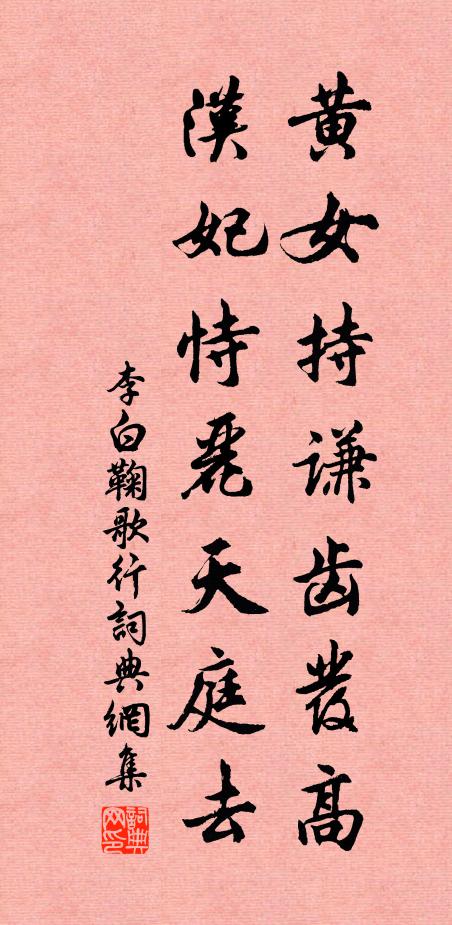 黄女持谦齿發高
漢妃恃麗天庭去
李白鞠歌行詞典網集
詞典网印